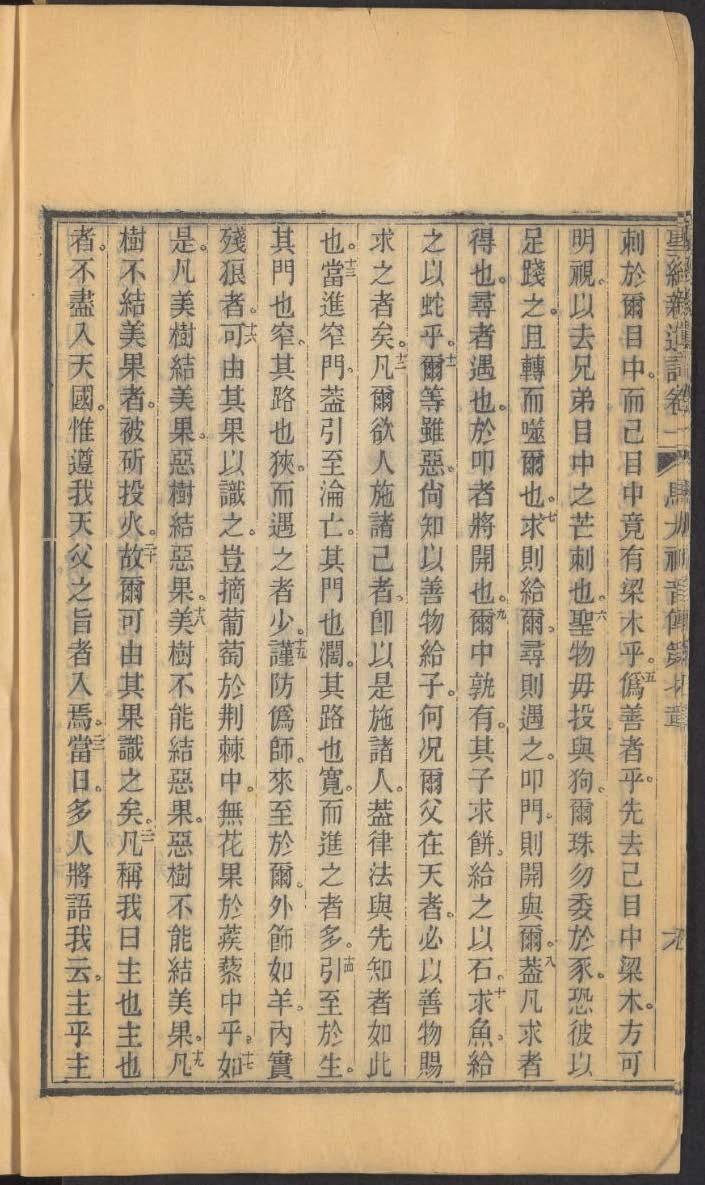 聖經新遺詔卷一 馬太福音傳第七章 九
刺於爾目中。而己目中竟有梁木乎。五僞善者乎。先去己目中梁木。方可
明視。以去兄弟目中之芒刺也。六聖物毋投與狗。爾珠勿委於豕。恐彼以
足踐之。且轉而噬爾也。七求則給爾。尋則遇之。叩門。則開與爾。八蓋凡求者
得也。尋者遇也。於叩者將開也。九爾中孰有。其子求餅。給之以石。十求魚。給
之以蛇乎。十一爾等雖惡。尙知以善物給子。何况爾父在天者。必以善物賜
求之者矣。十二凡爾欲人施諸己者。卽以是施諸人。蓋律法與先知者如此
也。十三當進窄門。蓋引至淪亡。其門也濶。其路也寬。而進之者多。十四引至於生。
其門也窄。其路也狹。而遇之者少。十五謹防僞師。來至於爾。外飾如羊。內實
殘狠者。十六可由其果以識之。豈摘葡萄於荆棘中。無花果於蒺藜中乎。十七如
是。凡美樹結美果。惡樹結惡果。十八美樹不能結惡果。惡樹不能結美果。十九凡
樹不結美果者。被斫投火。二十故爾可由其果識之矣。二一凡稱我曰主也主也
者。不盡入天國。惟遵我天父之旨者入焉。二二當日。多人將語我云。主乎主